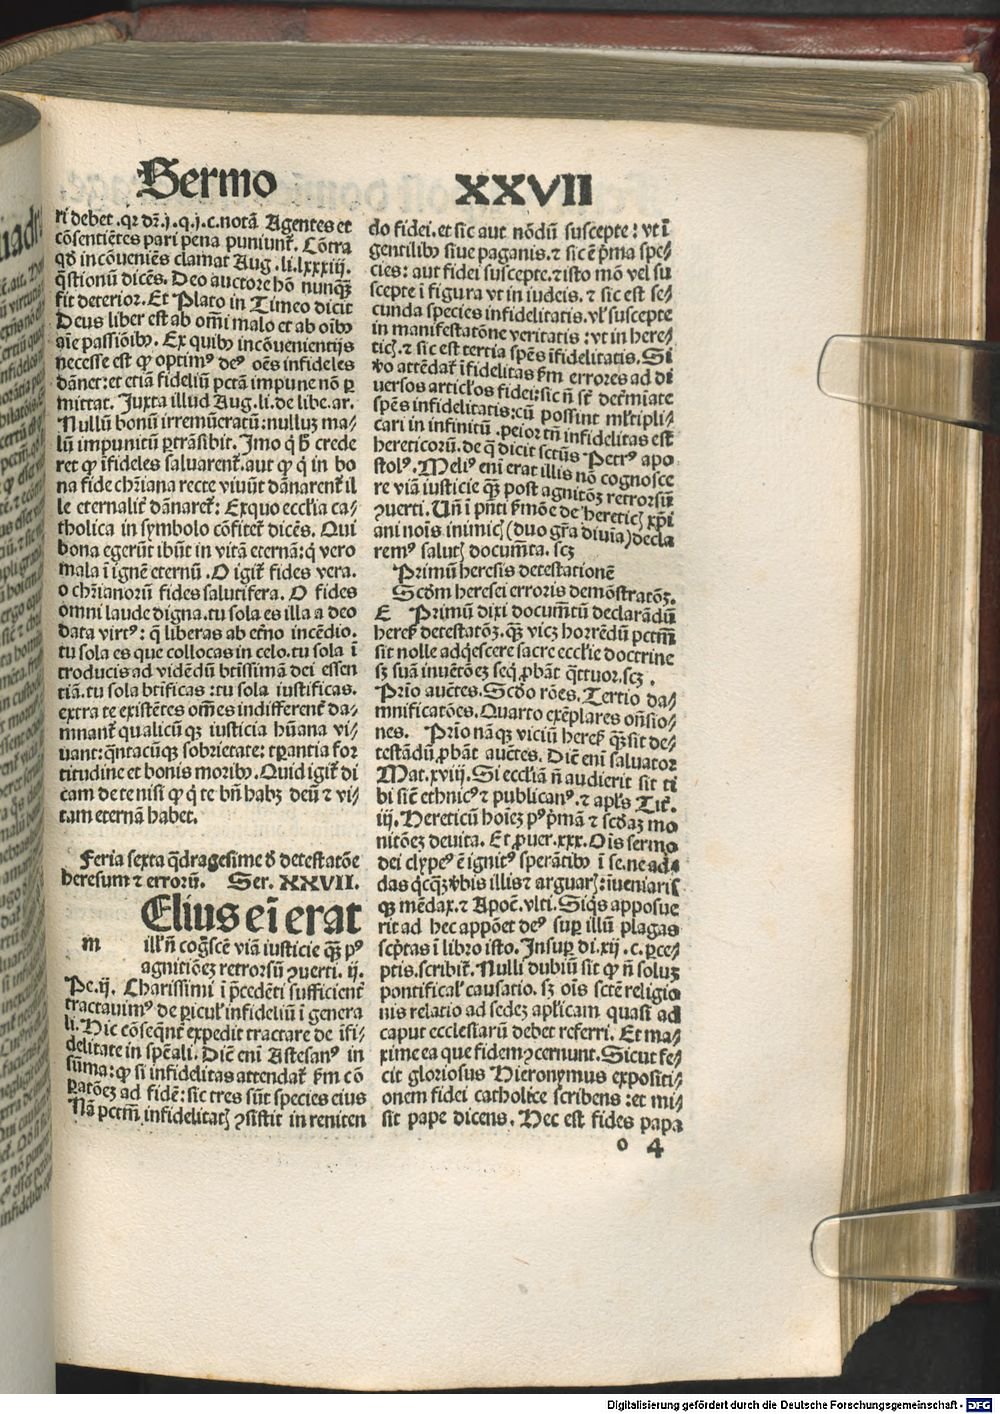 Sermo XXVII
ri debet .qr dr̄.j.q.j.c.notā Agentes et
cōsentiētes pari pena puniunt̄. Cōtra
qđ incōueniēs clamat Aug.li.lxxxiij.
q̄stionū dicēs. Deo auctore hō nunqꝫ
fit deterior. Et Plato in Timeo dicit
Deus liber est ab om̄i malo et ab oībꝰ
aīe passiōibꝰ. Ex quibꝰ incōuenientijs
necesse est ꝙ optimꝰ deꝰ oēs infideles
dānet: et etiā fideliū pctā impune nō ꝑ
mittat. Juxta illud Aug.li.de libe.ar.
Nullū bonū irremūeratū: nulluꝫ ma⸗
lū impunitū ꝑtrāsibit. Imo q̇ ħ crede
ret ꝙ īfideles saluarent̄. aut ꝙ q̇ in bo
na fide chr̄iana recte viuūt dānarent̄ il
le eternalit̄ dānaret̄: Exquo eccl̄ia ca⸗
tholica in symbolo cōfitet̄ dicēs. Qui
bona egerūt ibūt in vitā eternā: q̇ vero
mala ī ignē eternū. O igit̄ fides vera.
o chr̄ianorū fides salutifera. O fides
omni laude digna. tu sola es illa a deo
data virtꝰ: q̄ liberas ab et̄no incēdio.
tu sola es que collocas in celo. tu sola ī
troducis ad vidēdū btīssimā dei essen
tiā. tu sola btīficas: tu sola iustificas.
extra te existētes om̄es indifferent̄ da⸗
mnant̄ qualicūqꝫ iusticia hūana vi⸗
uant: q̄ntacūqꝫ sobrietate: tꝑantia for
titudine et bonis moribꝰ. Quid igit̄ di
cam de te nisi ꝙ q̇ te bn̄ habꝫ deū ꝛ vi⸗
tam eternā habet.
Feria sexta q̄dragesime đ detestatōe
heresum ꝛ errorū. Ser. XXVII.
Elius eī erat
m ill̓ n̄ cog̓scē viā iusticie qꝫ pꝰ
agnitiōeꝫ retrorsū ꝯuerti. ij.
Pe.ij. Charissimi ī p̄cedēti sufficient̄
tractauimꝰ de ꝑicul̓ infideliū ī genera
li. Hic cōseq̄nt̄ expedit tractare de īfi⸗
delitate in spēali. Dic̄ eni Astesanꝰ in
sūma: ꝙ si infidelitas attendat̄ ẜm cō
ꝑatōeꝫ ad fidē: sic tres sūt species eius
Nā pctm̄ infidelitatꝭ ꝯsistit in reniten
do fidei. et sic aut nōdū suscepte: vt ī
gentilibꝰ siue paganis. ꝛ sic ē p̄ma spe⸗
cies: aut fidei suscepte. ꝛ isto mō vel su
scepte ī figura vt in iudeis. ꝛ sic est se⸗
cunda species infidelitatis. vl̓ suscepte
in manifestatōne veritatis: vt in here⸗
ticꝭ. ꝛ sic est tertia spēs īfidelitatis. Si
v̊o attēdat̄ īfidelitas ẜm errores ad di
uersos articlos fidei: sic n̄ sūt det̄miate
spēs infidelitatis: cū possint ml̓tipli⸗
cari in infinitū. peior tn̄ infidelitas est
hereticorū. de q̄ dicit sctūs Petrꝰ apo
stolꝰ. Meliꝰ eni erat illis nō cognosce
re viā iusticie qꝫ post agnitōꝫ retrorsū
ꝯuerti. Un̄ ī pn̄ti ẜmōe de hereticꝭ xp̄i
ani nois inimicꝭ (duo gr̄a diuīa) decla
remꝰ salutꝭ documēta. scꝫ
Primū heresis detestationē
Scđm heresei erroris demōstratōꝫ.
E Primū dixi documētū declarādū
hereꝭ detestatōꝫ. qꝫ vicꝫ horrēdū pctm̄
sit nolle adq̇escere sacre eccl̄ie doctrine
sꝫ suā inuētōeꝫ seq̇ ꝓbāt q̄ttuor. scꝫ.
Prīo auctēs. Scđo rōes. Tertio da⸗
mnificatōes. Quarto exēplares oñsio⸗
nes. Prīo nāqꝫ viciū hereꝭ qꝫ sit de⸗
testādū ꝓbāt auctēs. Dic̄ eni saluator
Mat.xviij. Si eccl̄iā n̄ audierit sit ti
bi sic̄ ethnicꝰ ꝛ publicanꝰ. ꝛ apl̓s Tit̄.
iij. Hereticū hoīeꝫ pꝰ p̄mā ꝛ scđaꝫ mo
nitōeꝫ deuita. Et ꝓuer.xxx. Ois sermo
dei clypeꝰ ē ignitꝰ sperātibꝰ ī se. ne ad⸗
das q̇cqꝫ v̄bis illis ꝛ arguarꝭ: īueniarisqꝫ
mēdax. ꝛ Apoc̄.vlti. Siq̇s apposue
rit ad hec appōet deꝰ suꝑ illū plagas
scp̄tas ī libro isto. Insuꝑ di.xij.c.p̄ce⸗
ptis. scribit̄. Nulli dubiū sit ꝙ n̄ soluꝫ
pontifical̓ causatio. sꝫ ois sctē religio
nis relatio ad sedeꝫ apl̓icam quasi ad
caput ecclesiarū debet referri. Et ma⸗
xime ea que fidem ꝯcernunt. Sicut fe⸗
cit gloriosus Hieronymus expositi⸗
onem fidei catholice scribens: et mi⸗
sit pape dicens. Hec est fides papa
o 4
Digitalisierung gefördert durch die Deutsche Forschungsgemeinschaft - DFG